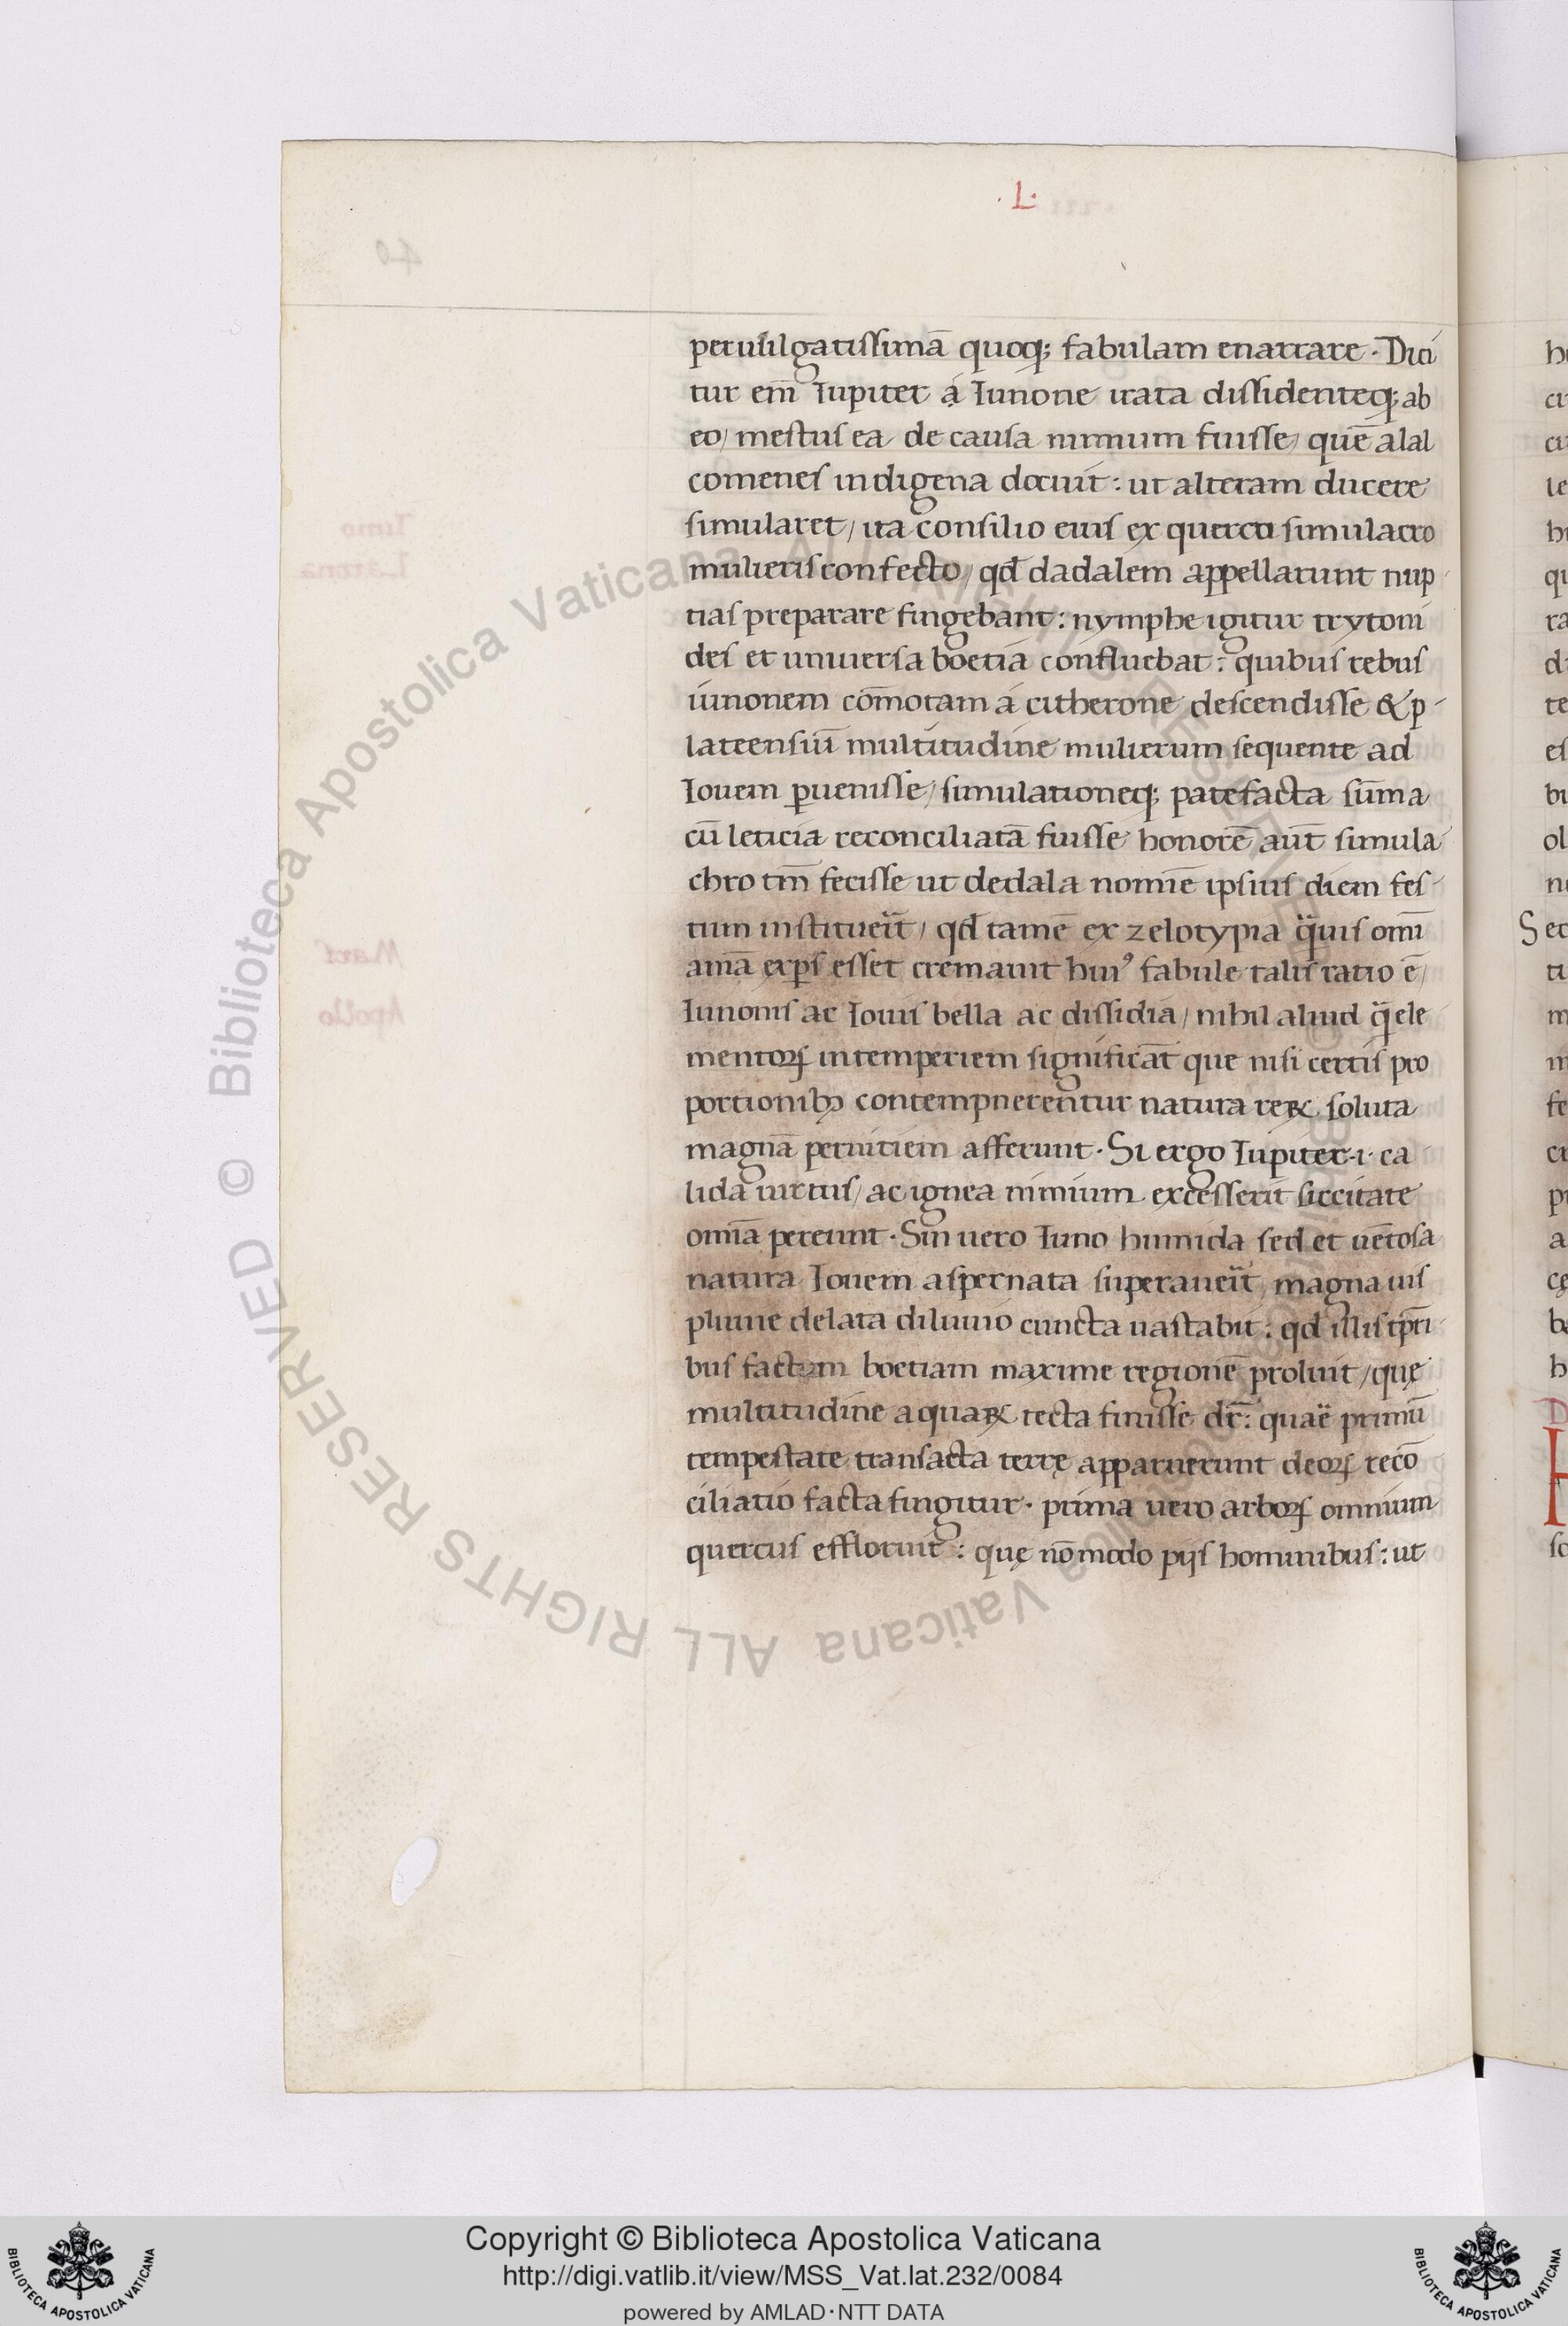 .L.
peruulgatissimā quoq; fabulam enarrare. Dici
tur em̄ Iupiter á Iunone irata dissidenteq; ab
eo/ mestus ea de causa nimium fuisse/ quē alal
comenes indigena docuit: ut alteram ducere
simularet/ ita consilio eius ex quercu simulacro
mulieris confecto/ qd̄ dadalem appellarunt nup
tias preparare fingebant: nymphe igitur trytoni
des et uniuersa boetia confluebat: quibus rebus
iunonem cōmotam á citherone descendisse & p-
lateensiū multitudine mulierum sequente ad
Iouem ꝑuenisse/ simulationeq; patefacta sūma
cū leticia reconciliatā fuisse honorē aūt simula
chro tm̄ fecisse ut dedala nomīe ipsius diem fes-
tum instituerit/ qd̄ tamē ex zelotypia q̈uis omī
aīa exꝑs esset cremauit huiꝰ fabule talis ratio ē/
Iunonis ac Iouis bella ac dissidia/ nihil aliud q̈ ele
mentoꝝ intemperiem significāt que nisi certis pro
portionibꝫ contempnerentur natura reꝝ soluta
magnā pernitiem afferunt. Si ergo Iupiter .i. ca
lida uirtus/ ac ignea nimium excesserit siccitate
omīa pereunt. Sin uero Iuno humida sed et uētosa
natura Iouem aspernata superauerit/ magna uis
pluuie delata diluuio cuncta uastabit: qd̄ illis tp̄ri-
bus factum boetiam maxime regionē proluit/ quę
multitudine aquaꝝ tecta fuisse dr̄: quae primū
tempestate transacta terrę apparuerunt deoꝝ recō
ciliatio facta fingitur. prima uero arboꝝ omnium
quercus effloruit: quę nō modo pijs hominibus: ut
40
Iuno
Latona
Mars
Apollo
S
© Biblioteca Apostolica Vaticana ALL RIGHTS RESERVED
© Biblioteca Apostolica Vaticana ALL RIGHTS RESERVED
Copyright © Biblioteca Apostolica Vaticana
http://digi.vatlib.it/view/MSS_Vat.lat.232/0084
powered by AMLAD·NTT DATA
BIBLIOTECA APOSTOLICA VATICANA
BIBLIOTECA APOSTOLICA VATICANA